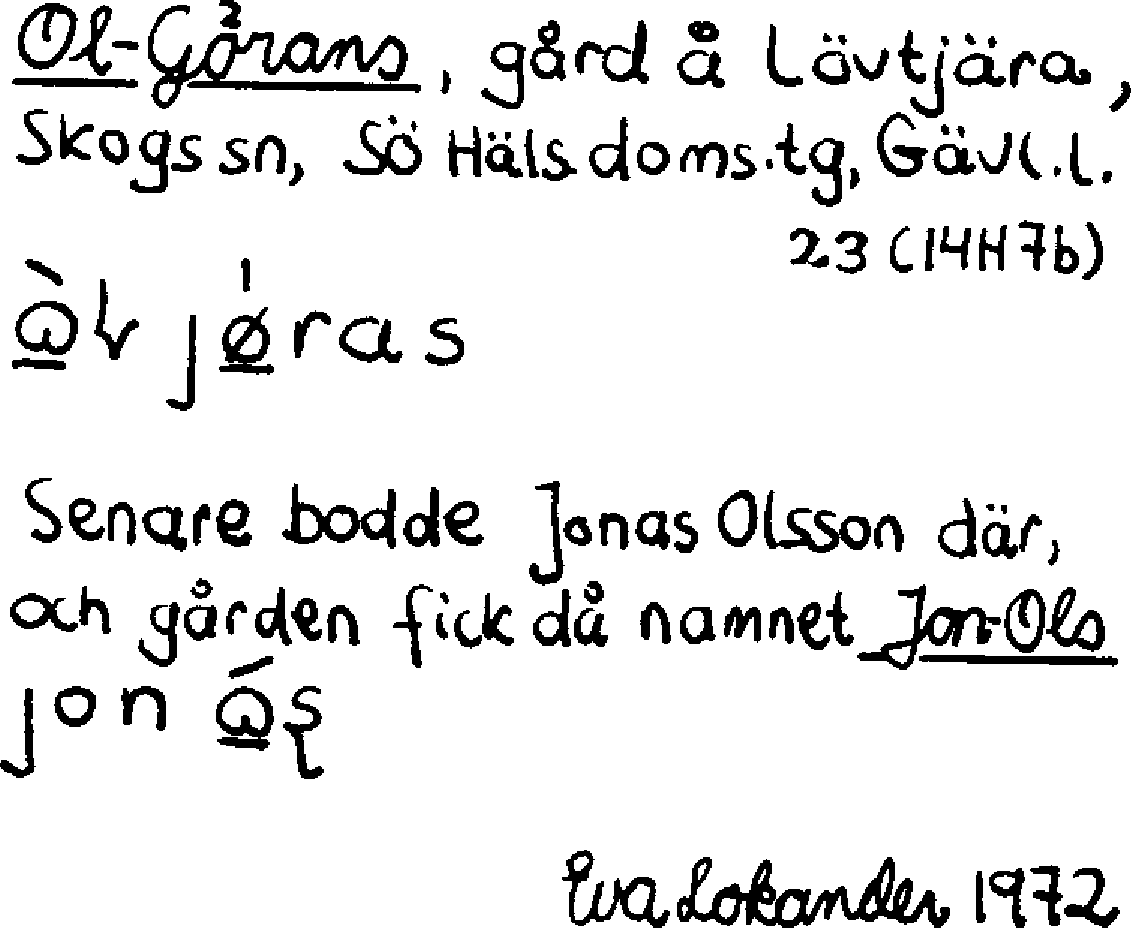 Ol-Görans, gård å Lövtjära,
Skogs sn, Sö Häls. doms.tg, Gävl.l.
23 (14H 7b)
Senare bodde Jonas Olsson där,
och gården fick då namnet Jon-Ols
jon
Eva Lokander 1972